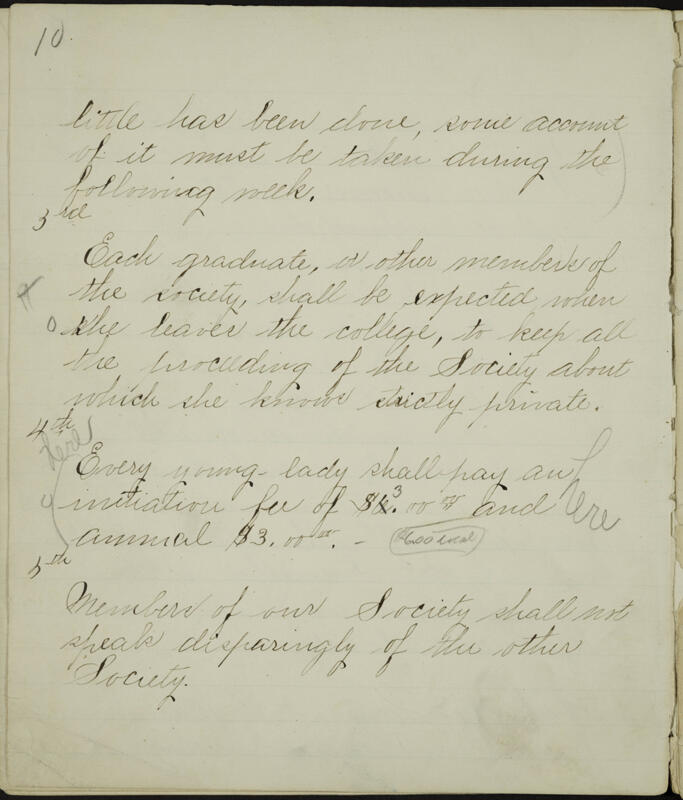 10.
little has been done, some account
of it must be taken during the
following week.
3rd
Each graduate, or other members of
the society, shall be expected when
she leaves the college, to keep all
the proceeding of the Society about
which she knows strictly private.
4th
here
Every young lady shall pay an
initiation fee of $3.00 and here
annual $3.00. -
5th
Members of our Society shall not
speak disparingly of the other
Society.